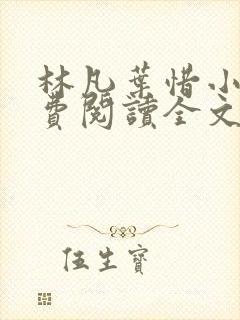 林凡葉惜小
費閱讀全文
伍生寶